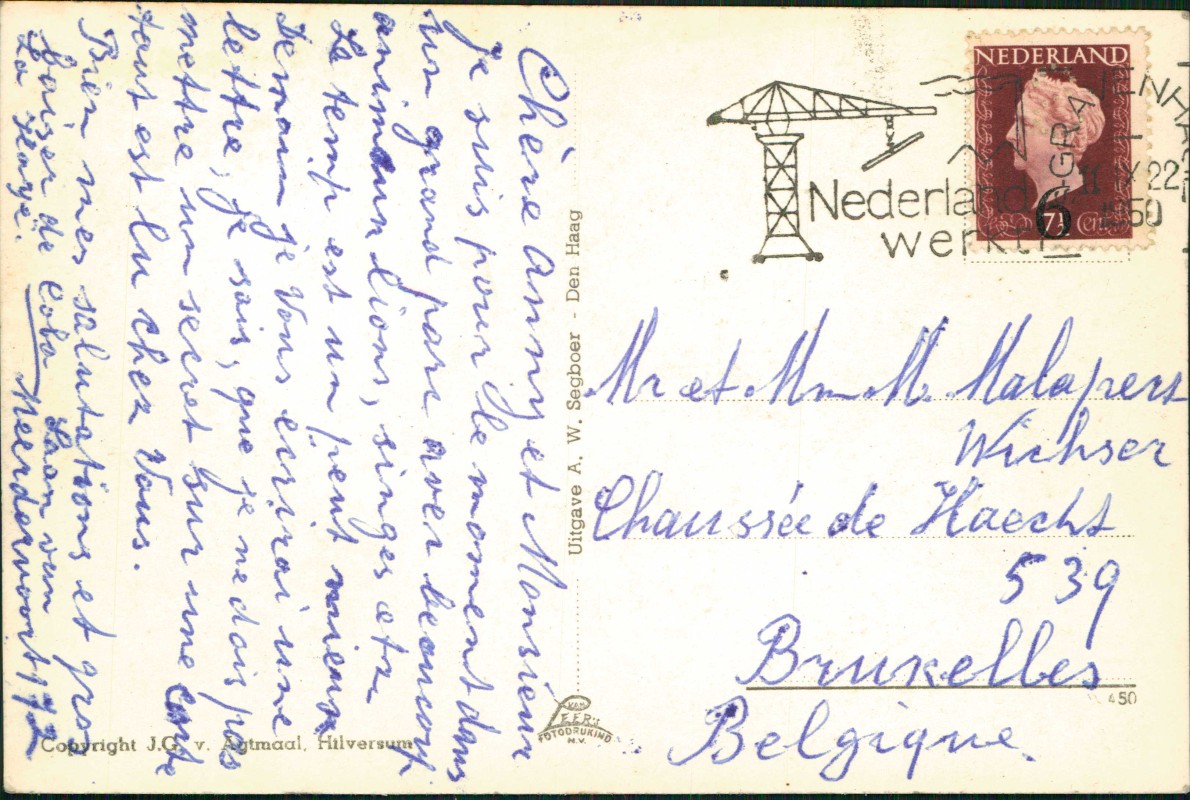 Chère Anny et Monsieur
Je suis pour le moment dans
un grand parc avec beaucoup
animaux lions, singes etz
Le temp est un peut mieux
Demain je Vous ecrirai une
lettre, je sais, que je ne dois pas
mettre um secret sur une carte
tout est lu chez Vous.
Bien mes salutations et gros
baiser de Coba Laan van
La Haye. Meerdervoort 172
Copyright J.G. v. Agtmaal, Hilversum
Uitgave A. W. Segboer - Den Haag
VAN LEER'S
FOTODRUKIND.
N.V.
NEDERLAND
6
7½ Cent
'S GRAVENHAGE
11 X 22
1950
Nederland
werkt!
Mr et Mm M. Malapers
Wichser
Chaussée de Haecht
539
Bruxelles
Belgique.
450